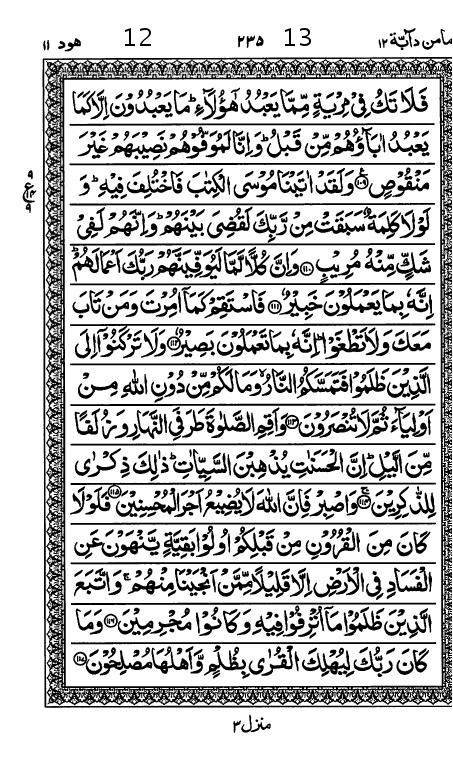 ومامن دآبّة ١٢ 13 ٢٣۵ 12 هود ١١
فَلَا تَكُ فِىْ مِرْيَةٍ مِّمَّا يَعْبُدُ هٰٓؤُلَآءِ ؕ مَا يَعْبُدُوْنَ اِلَّا كَمَا
يَعْبُدُ اٰبَآؤُهُمْ مِّنْ قَبْلُ ؕ وَاِنَّا لَمُوَفُّوْهُمْ نَصِيْبَهُمْ غَيْرَ
مَنْقُوْصٍ ﴿١٠٩﴾ وَلَقَدْ اٰتَيْنَا مُوْسَى الْكِتٰبَ فَاخْتُلِفَ فِيْهِ ؕ وَ
لَوْلَا كَلِمَةٌ سَبَقَتْ مِنْ رَّبِّكَ لَقُضِىَ بَيْنَهُمْ ؕ وَاِنَّهُمْ لَفِىْ
شَكٍّ مِّنْهُ مُرِيْبٍ ﴿١١٠﴾ وَاِنَّ كُلًّا لَّمَّا لَيُوَفِّيَنَّهُمْ رَبُّكَ اَعْمَالَهُمْ ؕ
اِنَّهٗ بِمَا يَعْمَلُوْنَ خَبِيْرٌ ﴿١١١﴾ فَاسْتَقِمْ كَمَآ اُمِرْتَ وَمَنْ تَابَ
مَعَكَ وَلَا تَطْغَوْا ؕ اِنَّهٗ بِمَا تَعْمَلُوْنَ بَصِيْرٌ ﴿١١٢﴾ وَلَا تَرْكَنُوْٓا اِلَى
الَّذِيْنَ ظَلَمُوْا فَتَمَسَّكُمُ النَّارُ ۙ وَمَا لَكُمْ مِّنْ دُوْنِ اللّٰهِ مِنْ
اَوْلِيَآءَ ثُمَّ لَا تُنْصَرُوْنَ ﴿١١٣﴾ وَاَقِمِ الصَّلٰوةَ طَرَفَىِ النَّهَارِ وَزُلَفًا
مِّنَ الَّيْلِ ؕ اِنَّ الْحَسَنٰتِ يُذْهِبْنَ السَّيِّاٰتِ ؕ ذٰلِكَ ذِكْرٰى
لِلذّٰكِرِيْنَ ﴿١١٤﴾ وَاصْبِرْ فَاِنَّ اللّٰهَ لَا يُضِيْعُ اَجْرَ الْمُحْسِنِيْنَ ﴿١١٥﴾ فَلَوْلَا
كَانَ مِنَ الْقُرُوْنِ مِنْ قَبْلِكُمْ اُولُوْا بَقِيَّةٍ يَّنْهَوْنَ عَنِ
الْفَسَادِ فِى الْاَرْضِ اِلَّا قَلِيْلًا مِّمَّنْ اَنْجَيْنَا مِنْهُمْ ۚ وَاتَّبَعَ
الَّذِيْنَ ظَلَمُوْا مَآ اُتْرِفُوْا فِيْهِ وَكَانُوْا مُجْرِمِيْنَ ﴿١١٦﴾ وَمَا
كَانَ رَبُّكَ لِيُهْلِكَ الْقُرٰى بِظُلْمٍ وَّاَهْلُهَا مُصْلِحُوْنَ ﴿١١٧﴾
منزل ٣